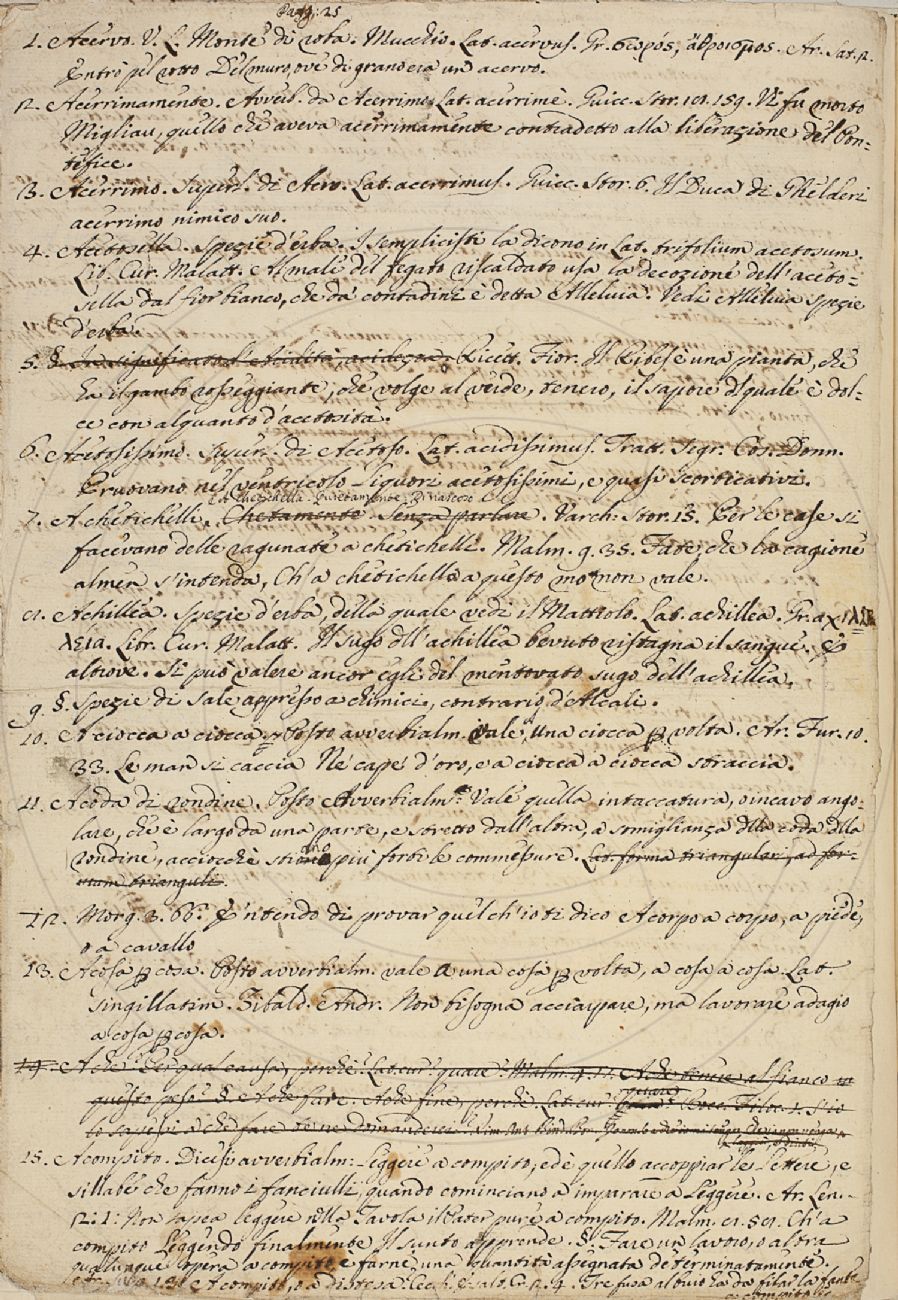 Pagg: 25
1. Acervo. V. L. Monte di roba. Mucchio. Lat. acervus. Gr. σωρός, ἄθροισμος. Ar. Sat. 2.
Entrò pel rotto Del muro, ove di grano era un acervo.
2. Acerrimamente. Avverb. da Acerrimo. Lat. acerrimè. Guicc. Stor. 18. 159. Vi fu morto
Migliau, quello che aveva acerrimamente contradetto alla liberazione del Pon=
tefice.
3. Acerrimo. Superl. di Acro. Lat. acerrimus. Guicc. Stor. 6. Il Duca di Ghelderi
acerrimo nimico suo.
4. Acetosella. Spezie d'erba. I semplicisti la dicono in Lat. trifolium acetosum.
Lib. Cur. Malatt. Al male del fegato riscaldato usa la decozione dell'aceto=
sella dal fior bianco, che da' contadini è detta Alleluia. Vedi Alleluia spezie
d'erba.
5. §. In significato d'Acidità, acidezza. Ricett. Fior. Il Ribes è una pianta, che
ha il gambo rosseggiante, che volge al verde, tenero, il sapore del quale è dol-
ce con alquanto d'acetosità.
6. Acetosissimo. Superl. di Acetoso. Lat. acidissimus. Tratt. Segr. Cos. Donn.
Truovano nel ventricolo liquori acetosissimi, e quasi scorticativi.
Quietamente, Di nascoso
7. A chetichelli. Chetamente Senza parlare. Varch. Stor. 13. Per le case si
facevano delle ragunate a chetichelli. Malm. 9. 35. Fate, che la cagione
almen s'intenda, Ch'a chetichelli a questo mo' non vale.
8. Achillea. Spezie d'erba, della quale vedi il Mattiolo. Lat. achillea. Gr. αχιλ
λεια. Libr. Cur. Malatt. Il sugo dell'achillea bevuto ristagna il sangue. E
altrove. Si può valere ancor egli del mentovato sugo dell'achillea.
9. §. Spezie di sale appresso a chimici, contrario d'Alcali.
10. A ciocca a ciocca. Posto avverbialm. vale, Una ciocca per volta. Ar. Fur. 10.
33. Le man si caccia Ne' capei d'oro, e a ciocca a ciocca straccia.
11. A coda di rondine. Posto Avverbialm.te Vale quella intaccatura, o incavo ango=
lare, che è largo da una parte, e stretto dall'altra, a somiglianza della coda della
rondine, acciocchè più forti le commessure. Lat. forma triangulari, ad for-
mam trianguli.
12. Morg. 3. 66. E 'ntendo di provar quel ch'io ti dico A corpo a corpo, a piede,
o a cavallo
13. A cosa per cosa. Posto avverbialm. vale a una cosa per volta, a cosa a cosa. Lat.
singillatim. Zibald. Andr. Non bisogna acciarpare, ma lavorare adagio
a cosa per cosa.
14. A che. Per qual causa, perchè. Lat. cur? quare? Malm. 4. A che tenere al fianco
questo peso? §. A che fare. A che fine, perchè. Lat. cur? quare? Bocc. Filoc. 1. S'io
lo sapessi a che fare te ne domanderei?
15. A compito. Dicesi avverbialm: Leggere a compito, ed è quello accoppiar le lettere, e
sillabe che fanno i fanciulli, quando cominciano a imparare a leggere. Ar. Len.
2: 1: Non sapea leggere nella Tavola il Pater pure a compito. Malm. 8. 58. Ch'a
compito leggendo finalmente Il sunto apprende. §. Fare un lavoro, o altra
qualunque opera a compito, è farne una quantità assegnata determinatamente.
A compito, o a distesa. Cecch. Esalt. Cr. 2. 4. Tre fusa al buio ha da filar la fante
a compito